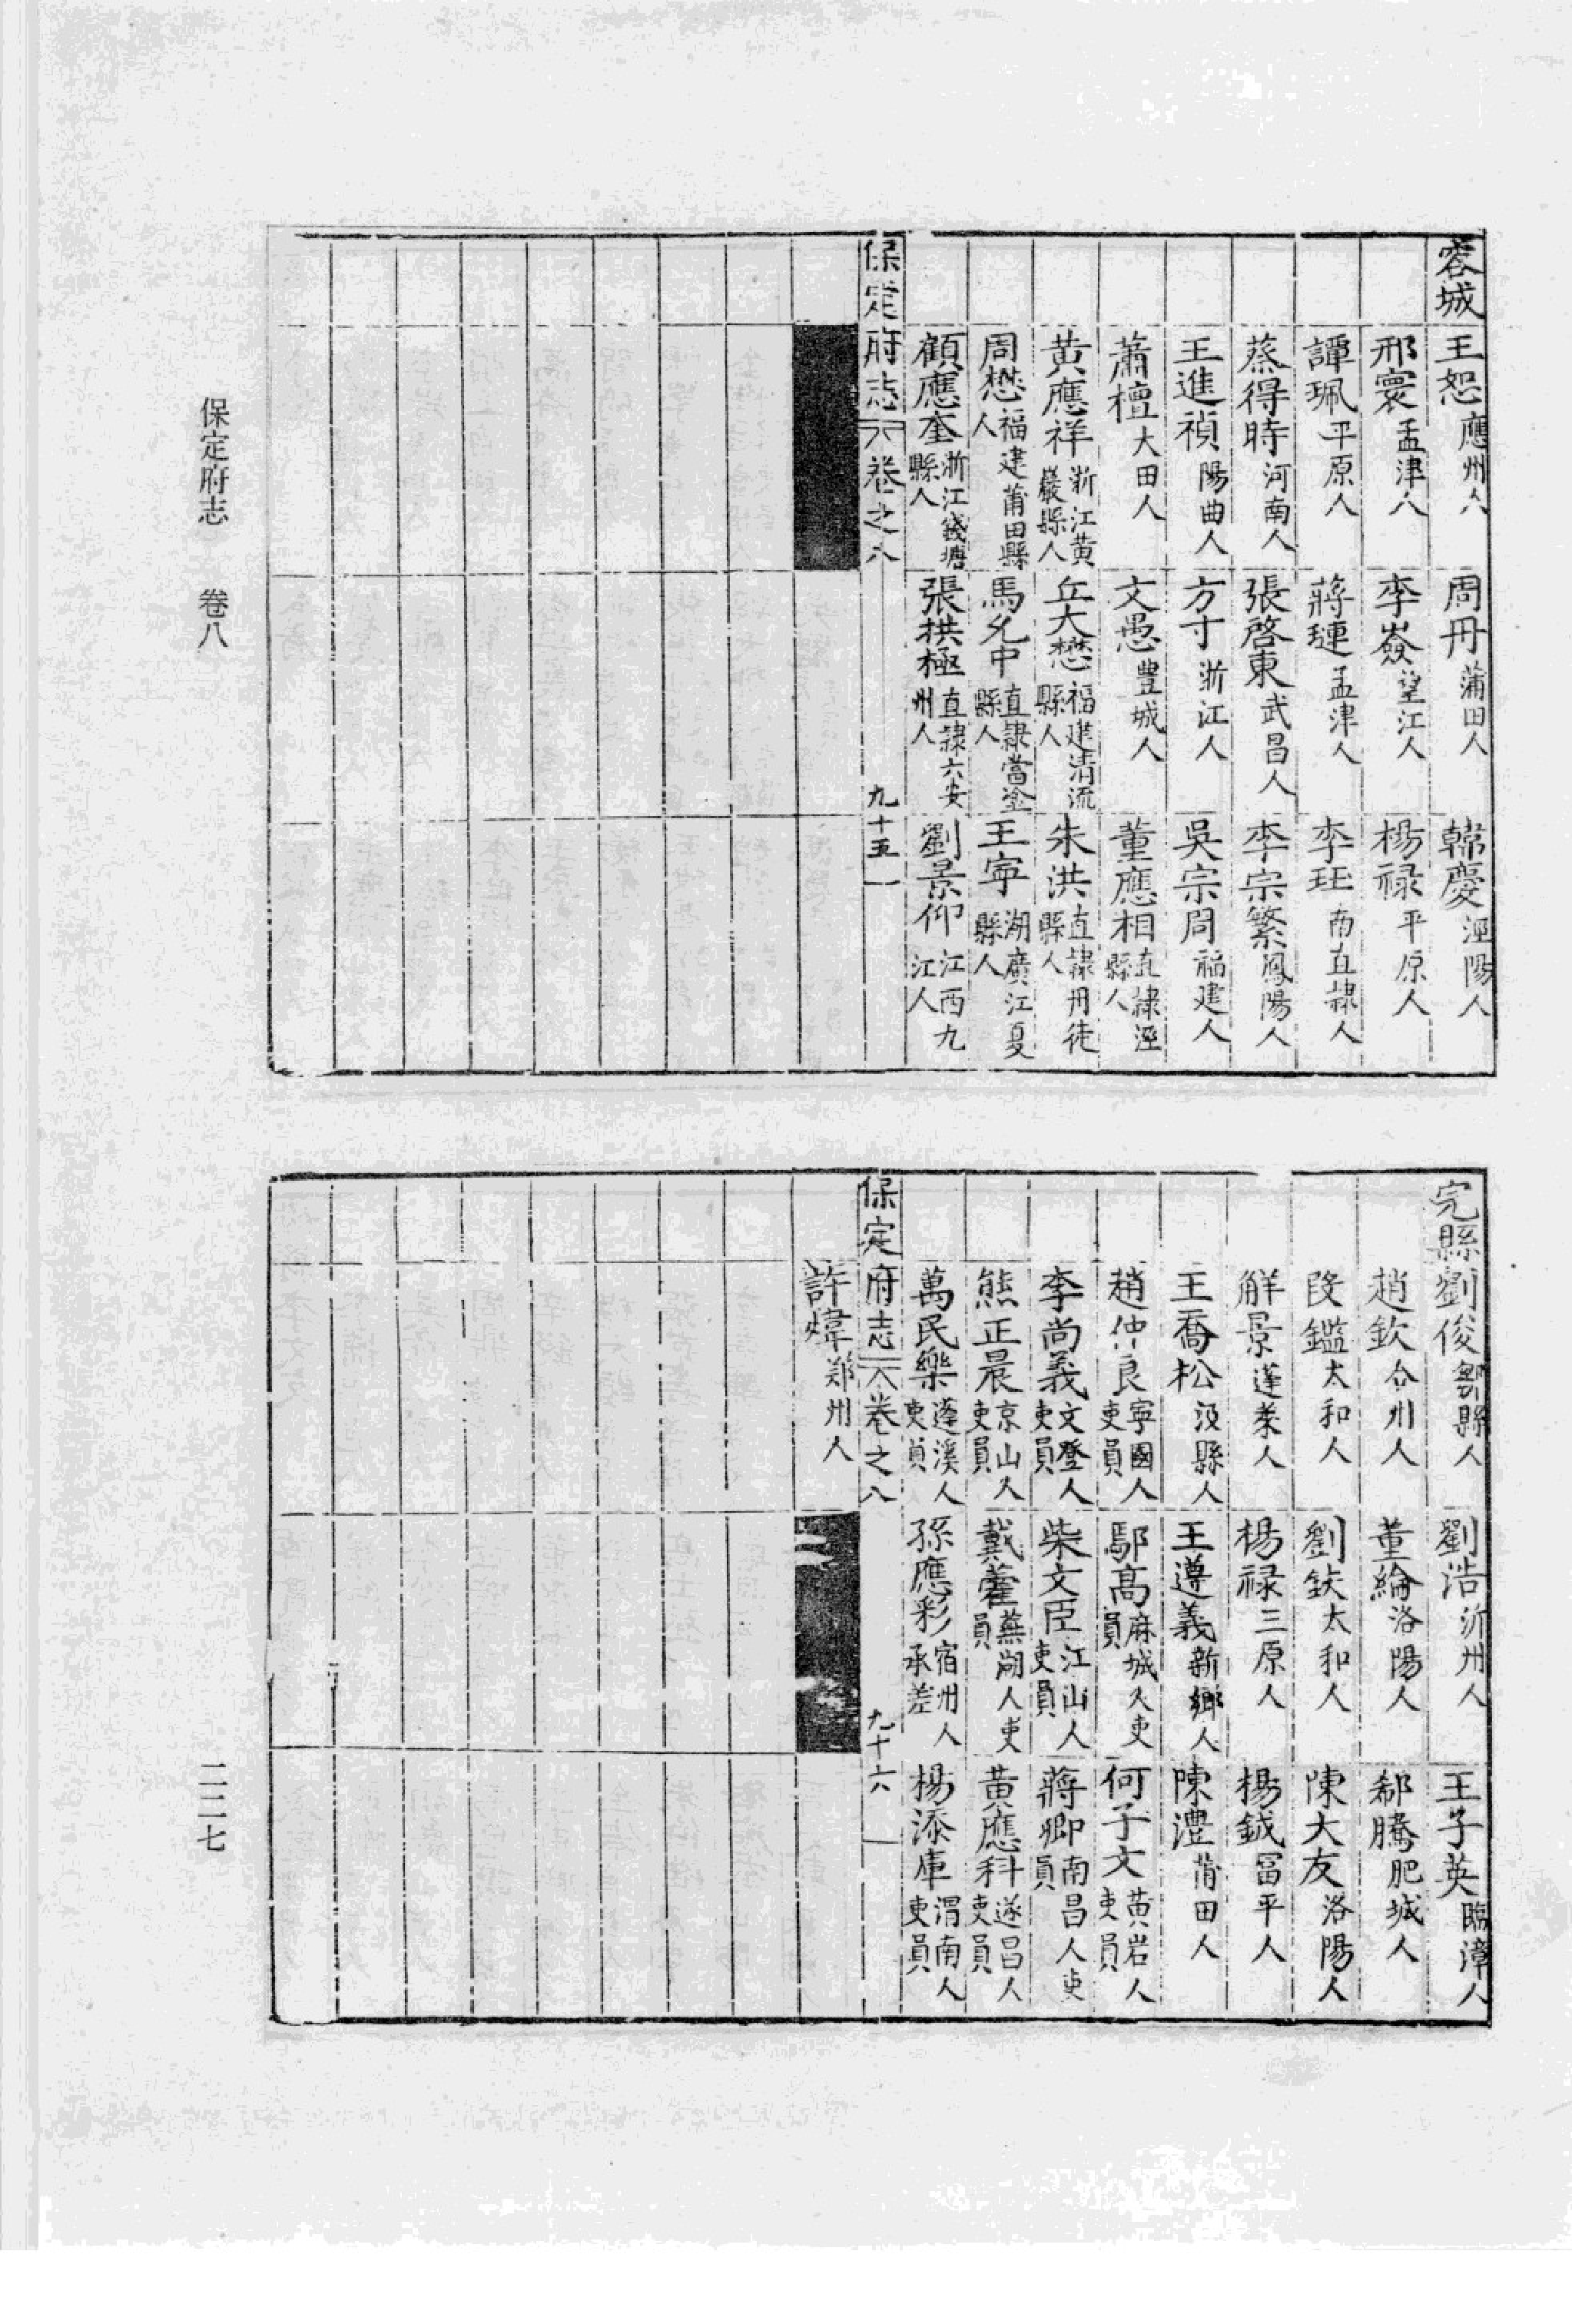 容城
王恕應州人
周冊蒲田人
韓慶涇陽人
邢寰孟津人
李焱望江人
楊禄平原人
譚珮平原人
蔣璉孟津人
李玨南直隸人
蔡得時河南人
張啓東武昌人
李宗繁鳳陽人
王進禎陽曲人
方寸浙江人
吳宗周福建人
蕭檀大田人
文愚豊城人
董應相直隸涇縣人
黃應祥浙江黃巖縣人
丘大懋福建清流縣人
朱洪直隸丹徒縣人
周懋福建莆田縣人
馬允中直隸當塗縣人
王寕湖廣江夏縣人
顧應奎浙江錢塘縣人
張拱極直隸六安州人
劉景仰江西九江人
保定府志 卷之八 九十五
完縣
劉俊鄒縣人
劉浩沂州人
王子英臨漳人
趙欽合州人
董綸洛陽人
郗騰肥城人
段鑑太和人
劉鈇太和人
陳大友洛陽人
觧景蓬萊人
楊禄三原人
楊鉞冨平人
王喬松汲縣人
王遵義新鄉人
陳澧莆田人
趙仲良寧國人吏員
鄢高麻城人吏員
何子文黃岩人吏員
李尚義文登人吏員
柴文臣江山人吏員
蔣卿南昌人吏員
熊正晨京山人吏員
戴藿蕪湖人吏員
黃應科遂昌人吏員
萬民樂蓬溪人吏員
孫應彩宿州人承差
楊添庫渭南人吏員
保定府志 卷之八 九十六
許煒鄭州人
保定府志 卷八
二二七